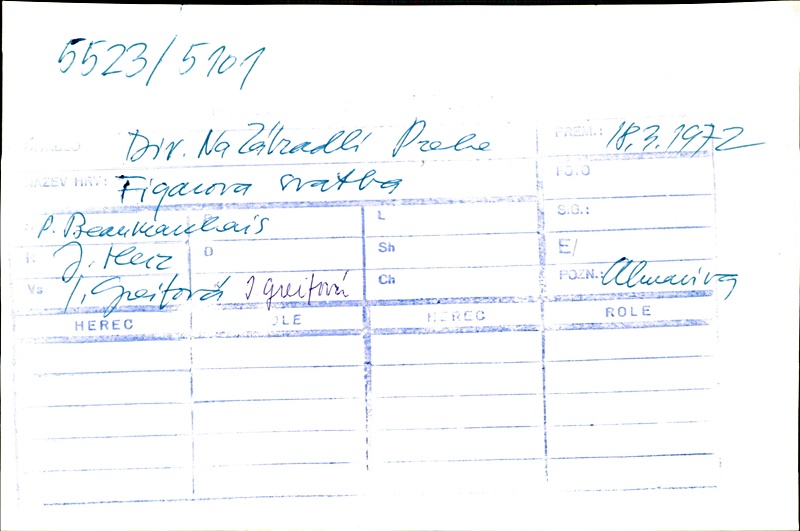 5523/5101
Div. Na Zábradlí Praha PREM.: 18.3.1972
NÁZEV HRY: Figarova svatba FOTO
P. Beaumarchais L S.G.:
J. Herz O Sh E/
Vs I. Greifová I greifová Ch POZN.: Almaviva
HEREC ROLE HEREC ROLE